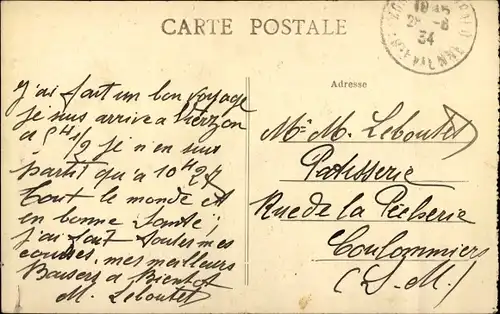 CARTE POSTALE
1845
28 -8
34
Adresse
J'ai fait un bon voyage
je suis arrivé a Vierzon
a 9H1/2 je n'en suis
partit qu'a 10H27
tout le monde est
en bonne santé,
j'ai fait toutes mes
courses, mes meilleurs
Baisers a Bientot
M. Leboutet
Mr M. Leboutet
Patisserie
Rue de la Pêcherie
Coulommiers
(S. M.)